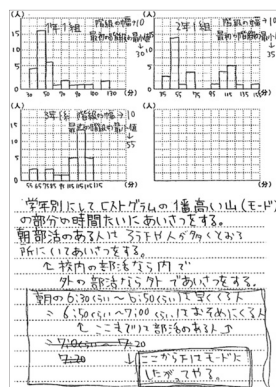 (人) 1年1組 階級の幅→10
最初の階級の最小値
↓
30
15
10
5
30 50 70 90 110 130 (分)
(人) 2年1組 階級の幅→10
最初の階級の最小
↓
35
15
10
5
35 55 75 95 115 (分)
(人) 3年1組 階級の幅→10
最初の階級の最小値
↓
55
15
10
5
(分)
(人)
(分)
学年別にしてヒストグラムの1番高い山(モード)
の部分の時間たいにあいさつをする。
朝部活のある人は ろう下や人が多くとおる
所にいてあいさつをする。
↳校内の部活なら内で
外の部活なら外であいさつをする。
朝の6:30(くらい)~6:50(くらい)は早くくる人
6:50(くらい)~7:00(くらい)はおそめにくる人
↑ここまでは部活のある人↑
こっから下はモードに
したがってやる。